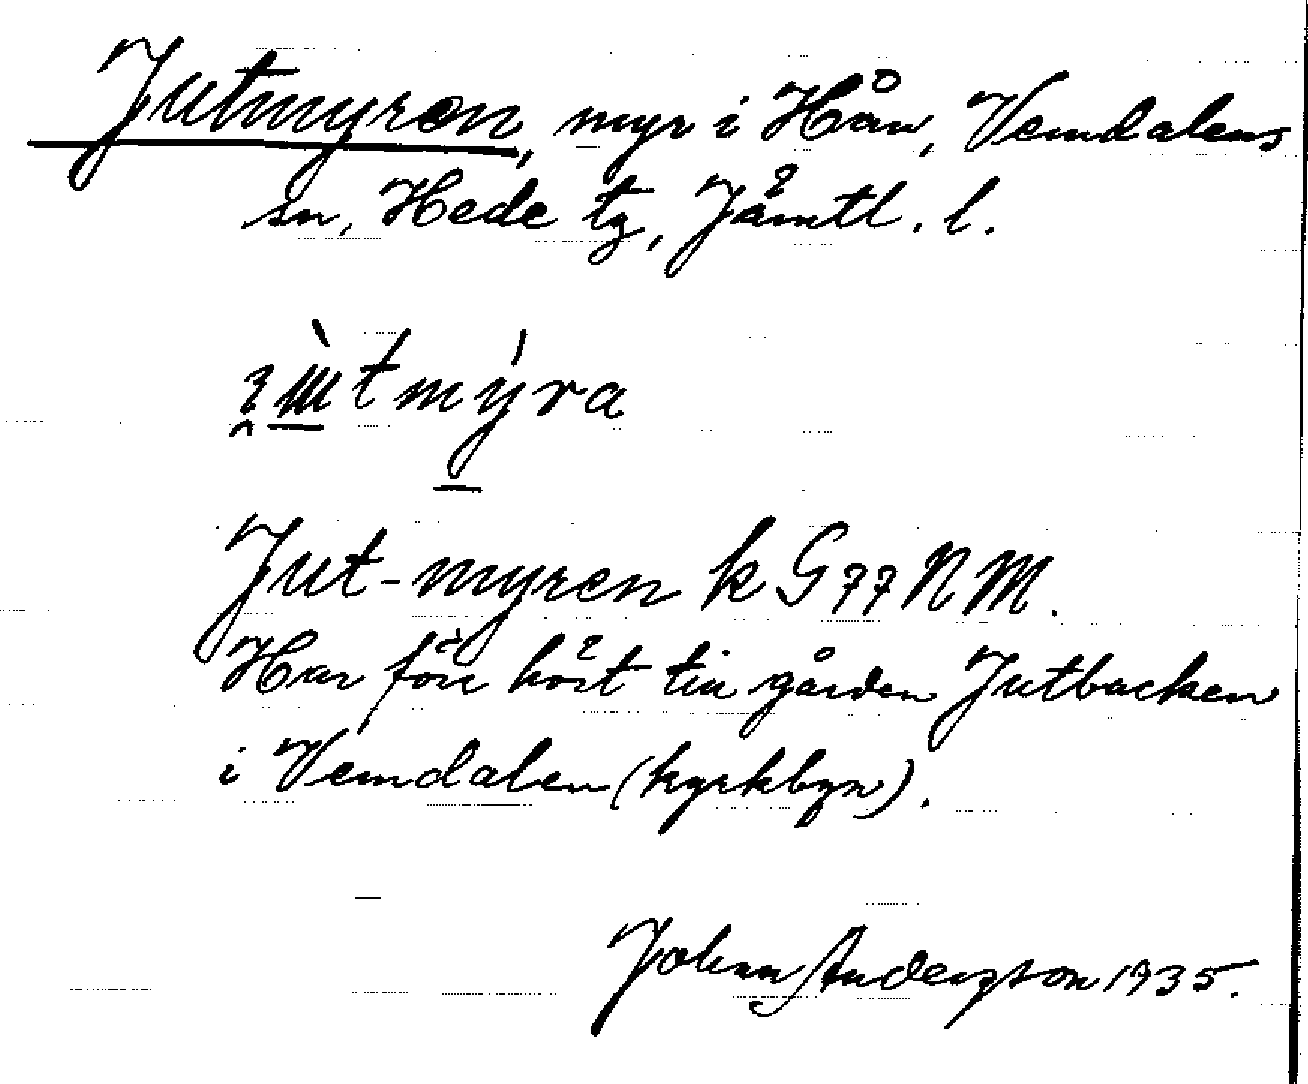 Jutmyren, myr i Hån, Vemdalens
sn, Hede tg, Jämtl. l.
tmýra
Jut-myren k G77 NM.
Har förr hört till gården Jutbacken
i Vemdalen (kyrkbyn).
Johan Anderzson 1935.